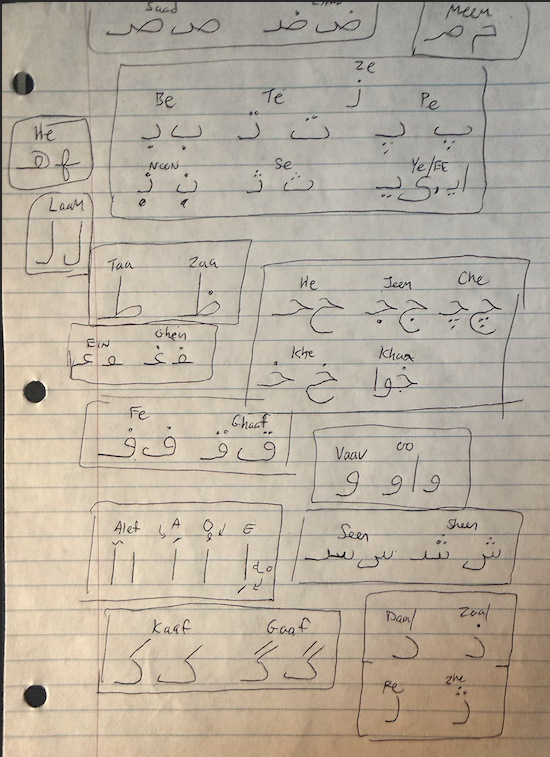 Saad
صد ص ضد ض
Meem
مـ م
Ze
ز
Be Te Pe
بـ ب تـ ت پـ پ
He
هـ ه
Noon Se Ye/EE
نـ ن ثـ ث یـ ی ای
Laam
لـ ل
Taa Zaa
ط ظ
He Jeem Che
حـ ح جـ ج چـ چ
EIN Ghein
عـ ـعـ غـ ـغـ
Khe Khaa
خـ خ خوا
Fe Ghaaf
فـ ف قـ ق
Vaav oo
و او و
Alef A O E
آ ا اَ اُ اِ ه
Seen Sheen
سد س شد ش
Kaaf Gaaf
کـ ک گـ گ
Daal Zaal
د ذ
Re Zhe
ر ژ